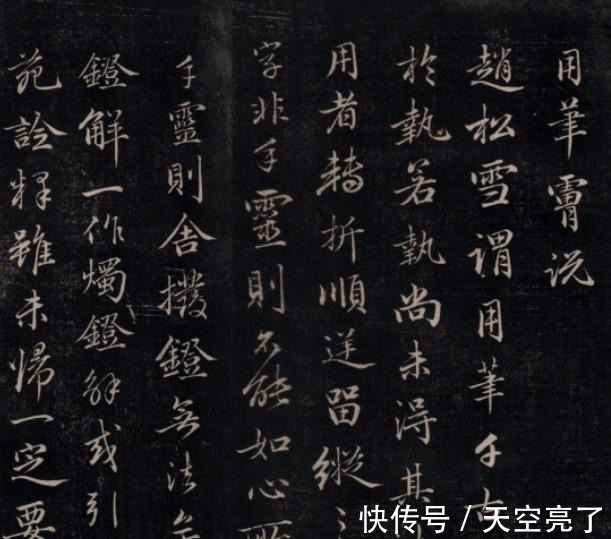 用筆膚说
趙松雪謂用筆千古
於執若執尚未得其
用者轉折順逆留縱
字非手靈則不能如心所
手靈則舍撥鐙無法
鐙解一作燭鐙解或引
苑詮釋雖未歸一定要
快传号 / 天空亮了